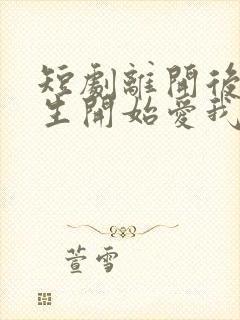 短劇離開後
生開始愛我
萱雪